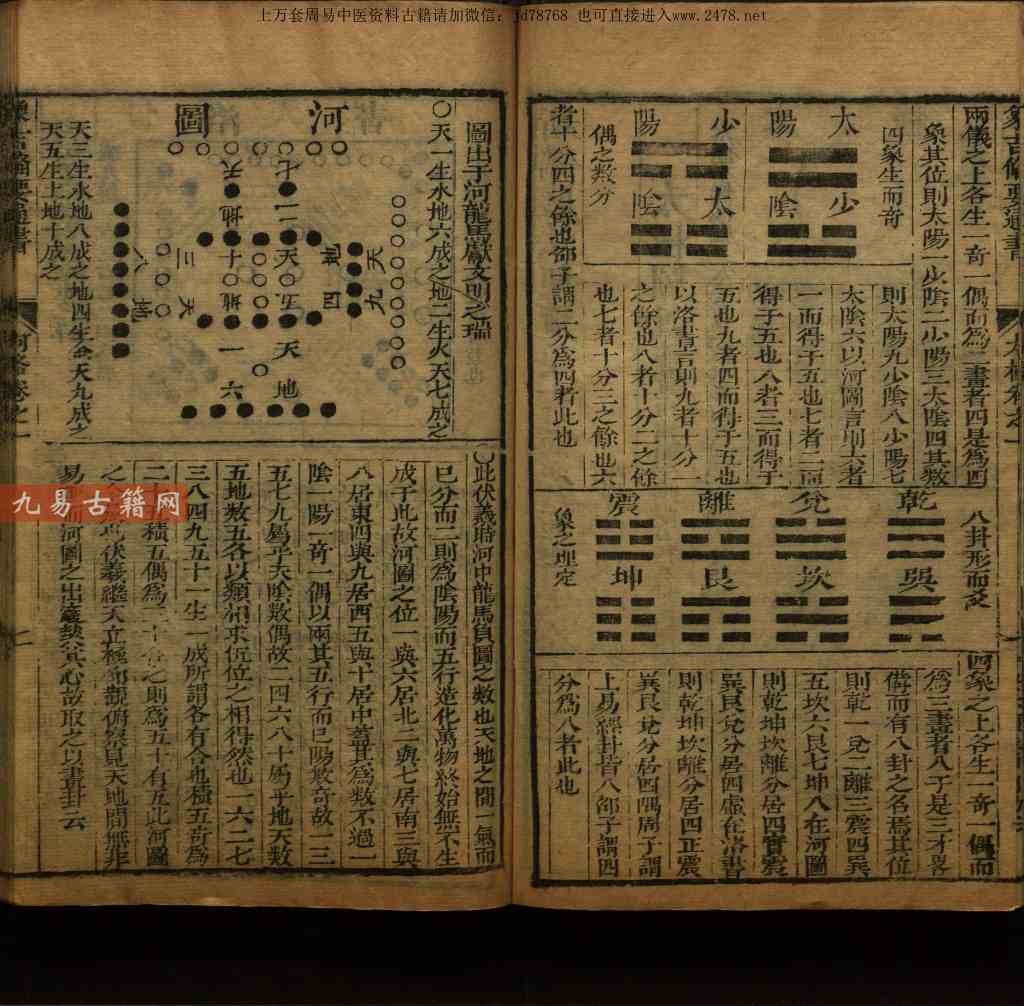 上万套周易中医资料古籍请加微信：jd78768 也可直接进入www.2478.net
兩儀之上各生一奇一偶而為二畫者四是為四
象其位則太陽一少陰二少陽三太陰四其數
則太陽九少陰八少陽七
太陰六以河圖言則六者
一而得于五也七者二而
得于五也八者三而得于
五也九者四而得于五也
以洛書言則九者十分一
之餘也八者十分二之餘
也七者十分三之餘也六
者十分四之餘也邵子謂二分為四者此也
四象生而奇
太陽
少陰
少陽
太陰
偶之數分
八卦形而爻
乾
兌
離
震
巽
坎
艮
坤
象之理定
四象之上各生一奇一偶而
為三畫者八于是三才畧
備而有八卦之名焉其位
則乾一兌二離三震四巽
五坎六艮七坤八在河圖
則乾坤坎離分居四實震
巽艮兌分居四虛在洛書
則乾坤坎離分居四正震
巽艮兌分居四隅周子謂
上易經卦皆八邵子謂四
分為八者此也
圖出于河龍馬獻文明之瑞
○天一生水地六成之地二生火天七成之
河圖
七
二
天五
十
地四
天九
天三
地八
天一
地六
天三生木地八成之地四生金天九成之
天五生土地十成之
○此伏羲時河中龍馬負圖之數也天地之間一氣而
已分而二則為陰陽而五行造化萬物終始無不生
成于此故河圖之位一與六居北二與七居南三與
八居東四與九居西五與十居中蓋其為數不過一
陰一陽一奇一偶以兩其五行而已陽數奇故一三
五七九屬乎天陰數偶故二四六八十屬乎地天數
五地數五各以類相求伍位之相得然也一六二七
三八四九五十一生一成所謂各有合也積五奇為
二十積五偶為三十合之則為五十有五此河圖
之此伏羲繼天立極仰觀俯察見天地間無非
易而河圖之出適契其心故取之以畫卦云
九易古籍网